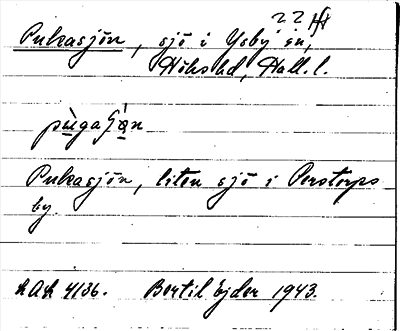 22 Hl
Pukasjön, sjö i Ysby sn,
Höks hd, Hall. l.
pùgaʃǿn
Pukasjön, liten sjö i Perstorps
by.
LAL 4136. Bertil Ejder 1943.